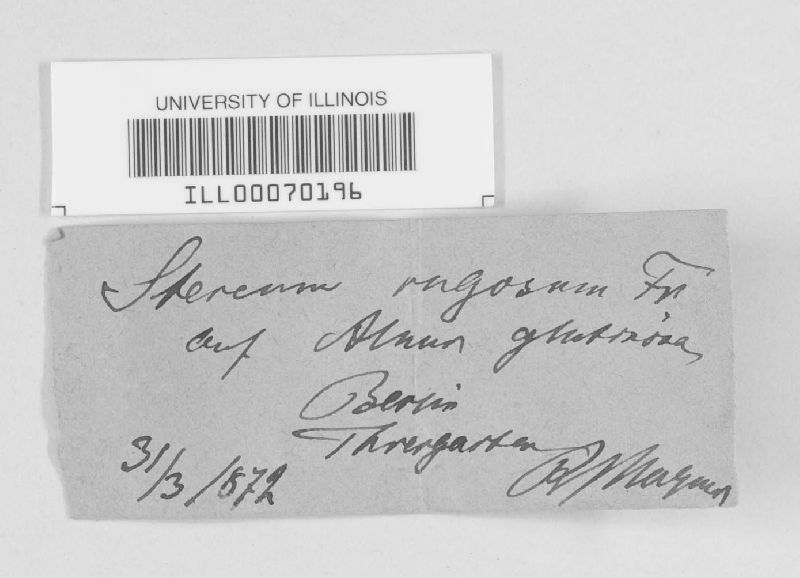 UNIVERSITY OF ILLINOIS
ILL00070196
Stereum rugosum Fr
auf Alnus glutinosa
Berlin
Thiergarten
31/3 1872 P Magnus